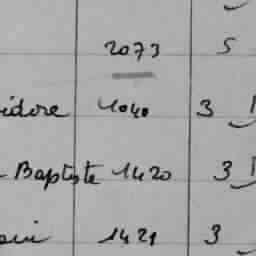 2073 5
idore 1040 3
Baptiste 1420 3
1421 3